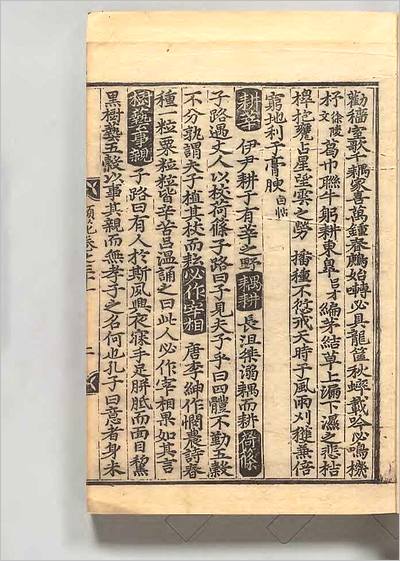 勸穡室歌千耦家喜萬鍾春鳸始囀必具龍篚秋蛩載吟必鳴機
杼徐陵文葛巾聯牛躬耕東皐呂才編茅結草上漏下濕之悲枯
槹抱甕占星望雲之勞播種不愆戒天時于風雨刈穫兼倍
窮地利于膏腴白帖
耕莘伊尹耕于有莘之野耦耕長沮桀溺耦而耕荷蓧
子路遇丈人以杖荷蓧子路曰子見夫子乎曰四體不勤五穀
不分孰謂夫子植其杖而耘必作宰相唐李紳作憫農詩春
種一粒粟粒粒皆辛苦呂溫誦之曰此人必作宰相果如其言
樹藝事親子路曰有人於斯夙興夜寐手足胼胝而面目黧
黑樹藝五穀以事其親而無孝子之名何也孔子曰意者身未